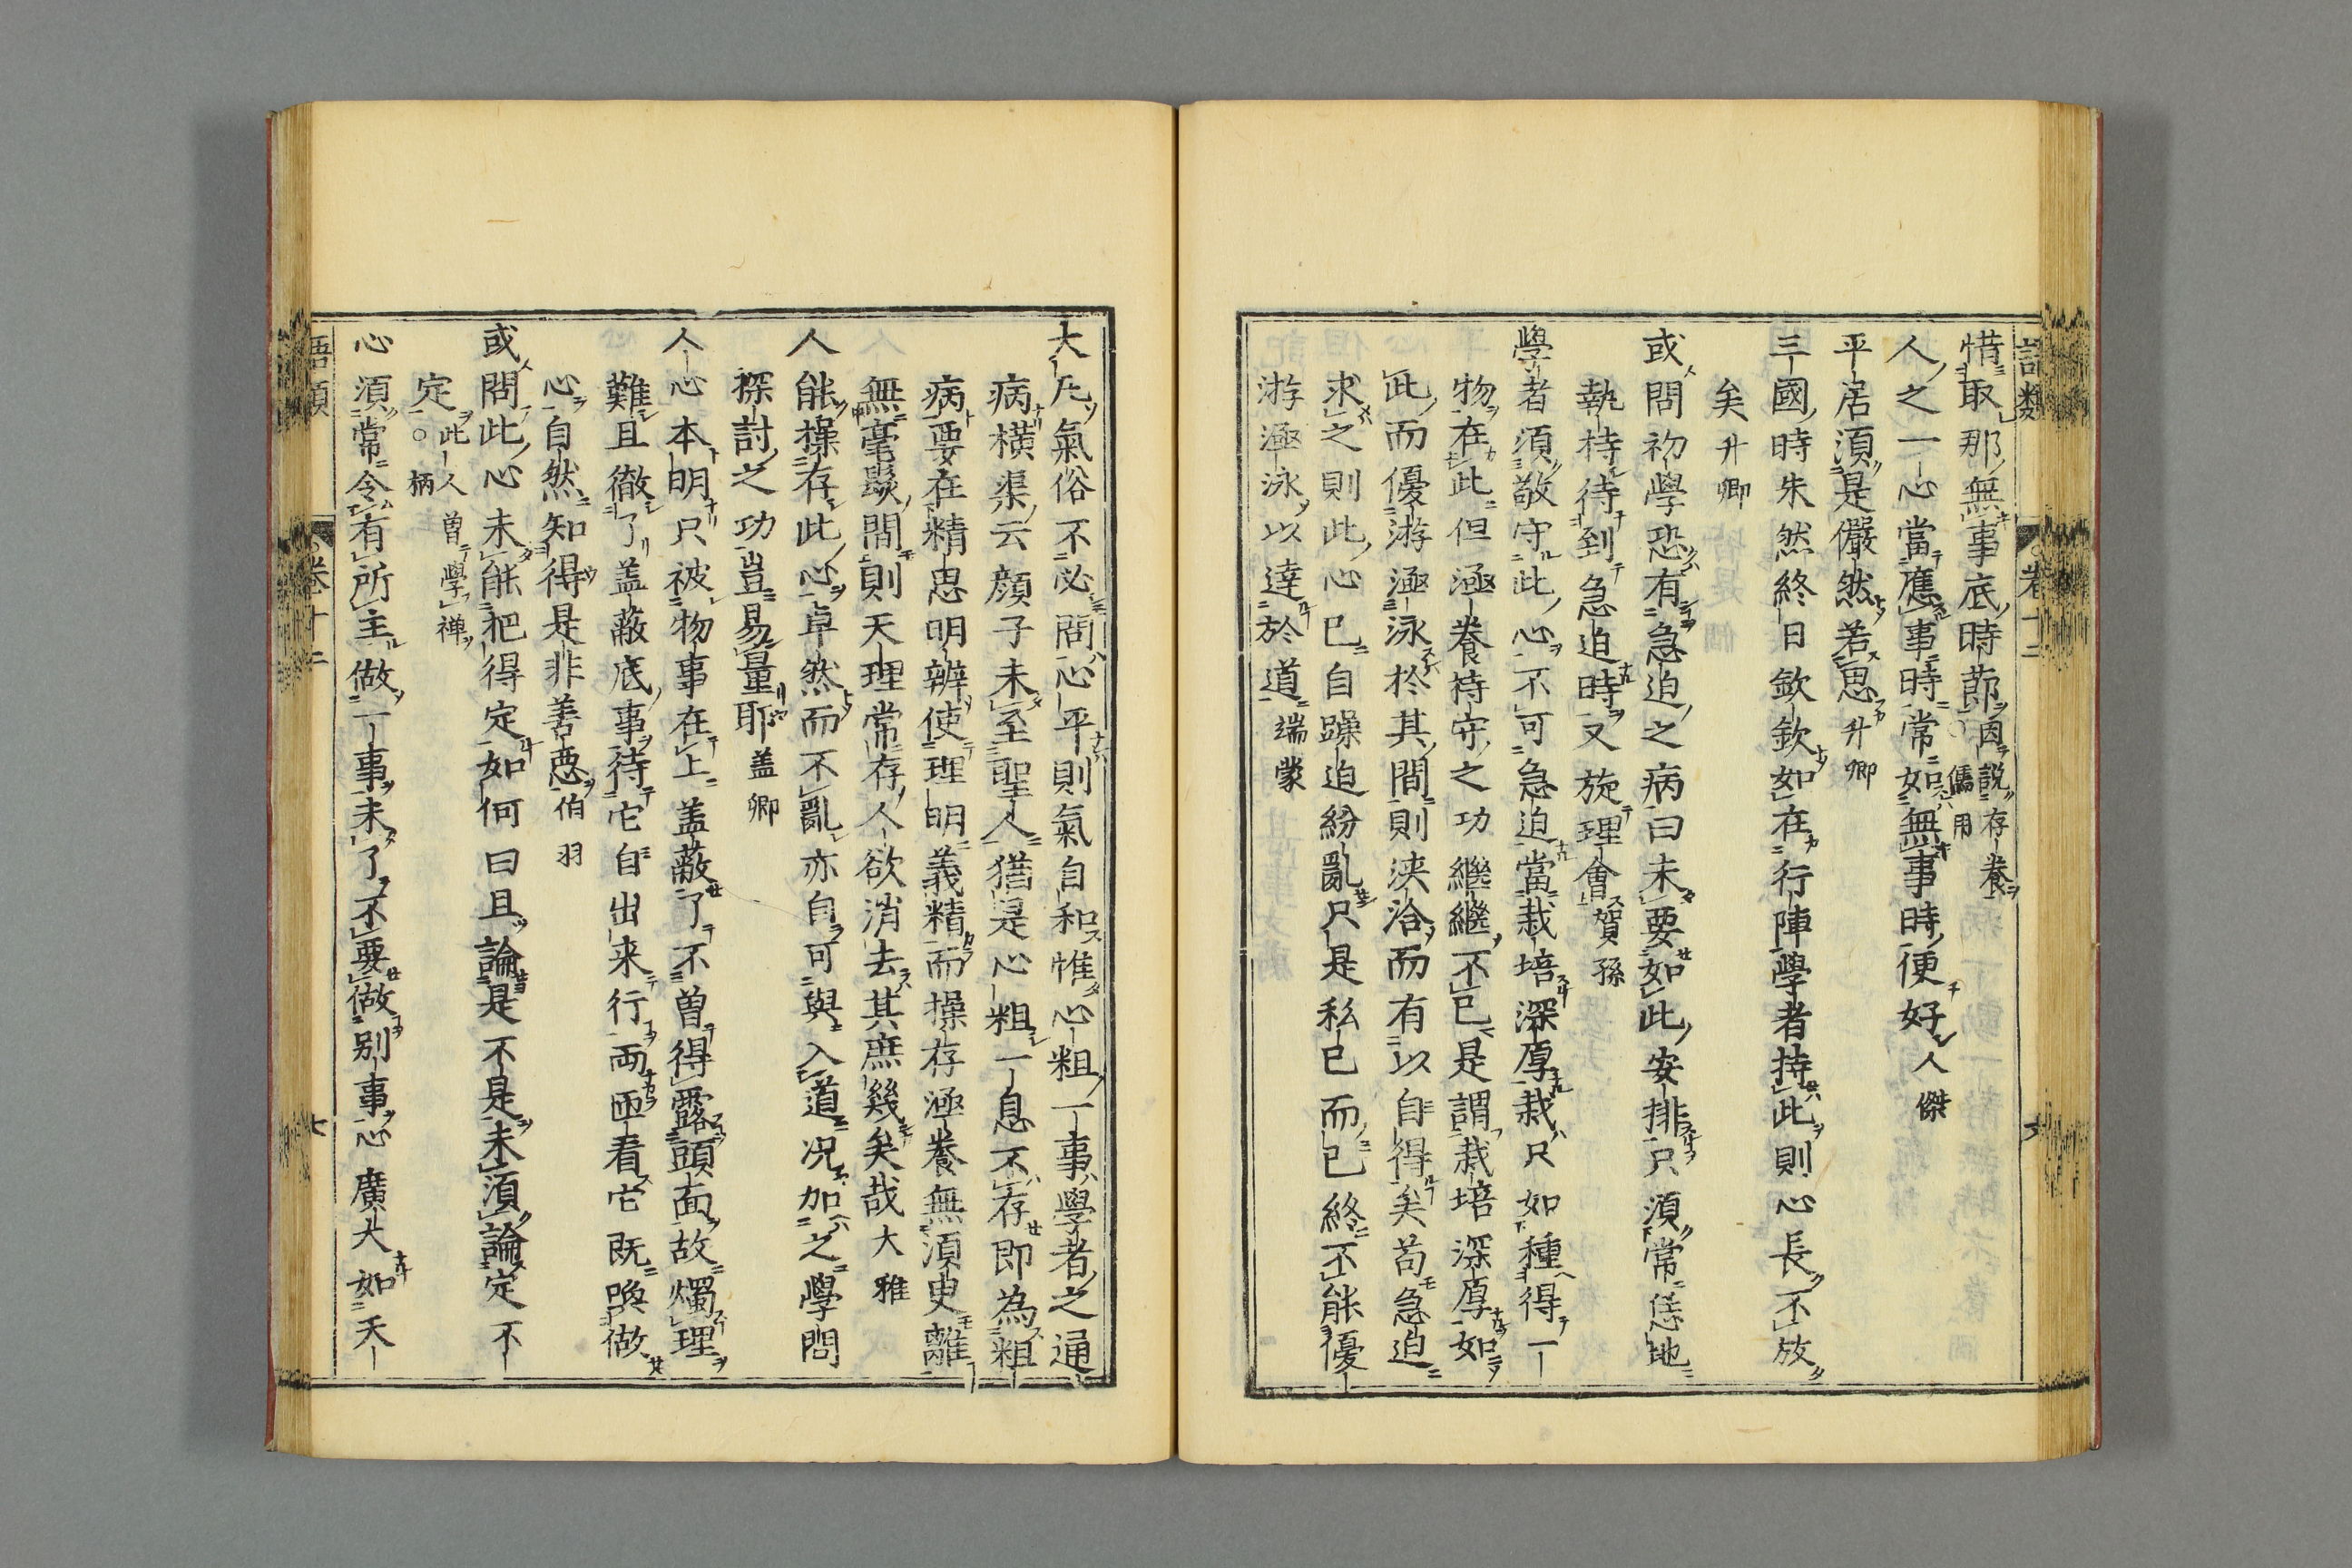 語類
卷十二
惜取那無事底時節因說存養○儒用
人之一心當應事時常如無事時便好人傑
平居須是儼然若思升卿
三國時朱然終日欽欽如在行陣學者持此則心長不放
矣升卿
或問初學恐有急迫之病曰未要如此安排只須常恁地
執持待到急迫時又旋理會賀孫
學者須敬守此心不可急迫當栽培深厚栽只如種得一
物在此但涵養持守之功繼繼不已是謂栽培深厚如
此而優游涵泳於其間則浹洽而有以自得矣苟急迫
求之則此心已自躁迫紛亂只是私已而已終不能優
游涵泳以達於道端蒙
大凡氣俗不必問心平則氣自和惟心粗一事學者之通
病橫渠云顏子未至聖人猶是心粗一息不存即為粗
病要在精思明辨使理明義精而操存涵養無須臾離
無毫髮間則天理常存人欲消去其庶幾矣哉大雅
人能操存此心卓然而不亂亦自可與入道況加之學問
探討之功豈易量耶蓋卿
人心本明只被物事在上蓋蔽了不曾得露頭面故燭理
難且徹了蓋蔽底事待它自出来行兩匝看它既喚做
心自然知得是非善惡伯羽
或問此心未能把得定如何曰且論是不是未須論定不
定此人曾學禪○柄
心須常令有所主做一事未了不要做别事心廣大如天
語類
卷十二
七